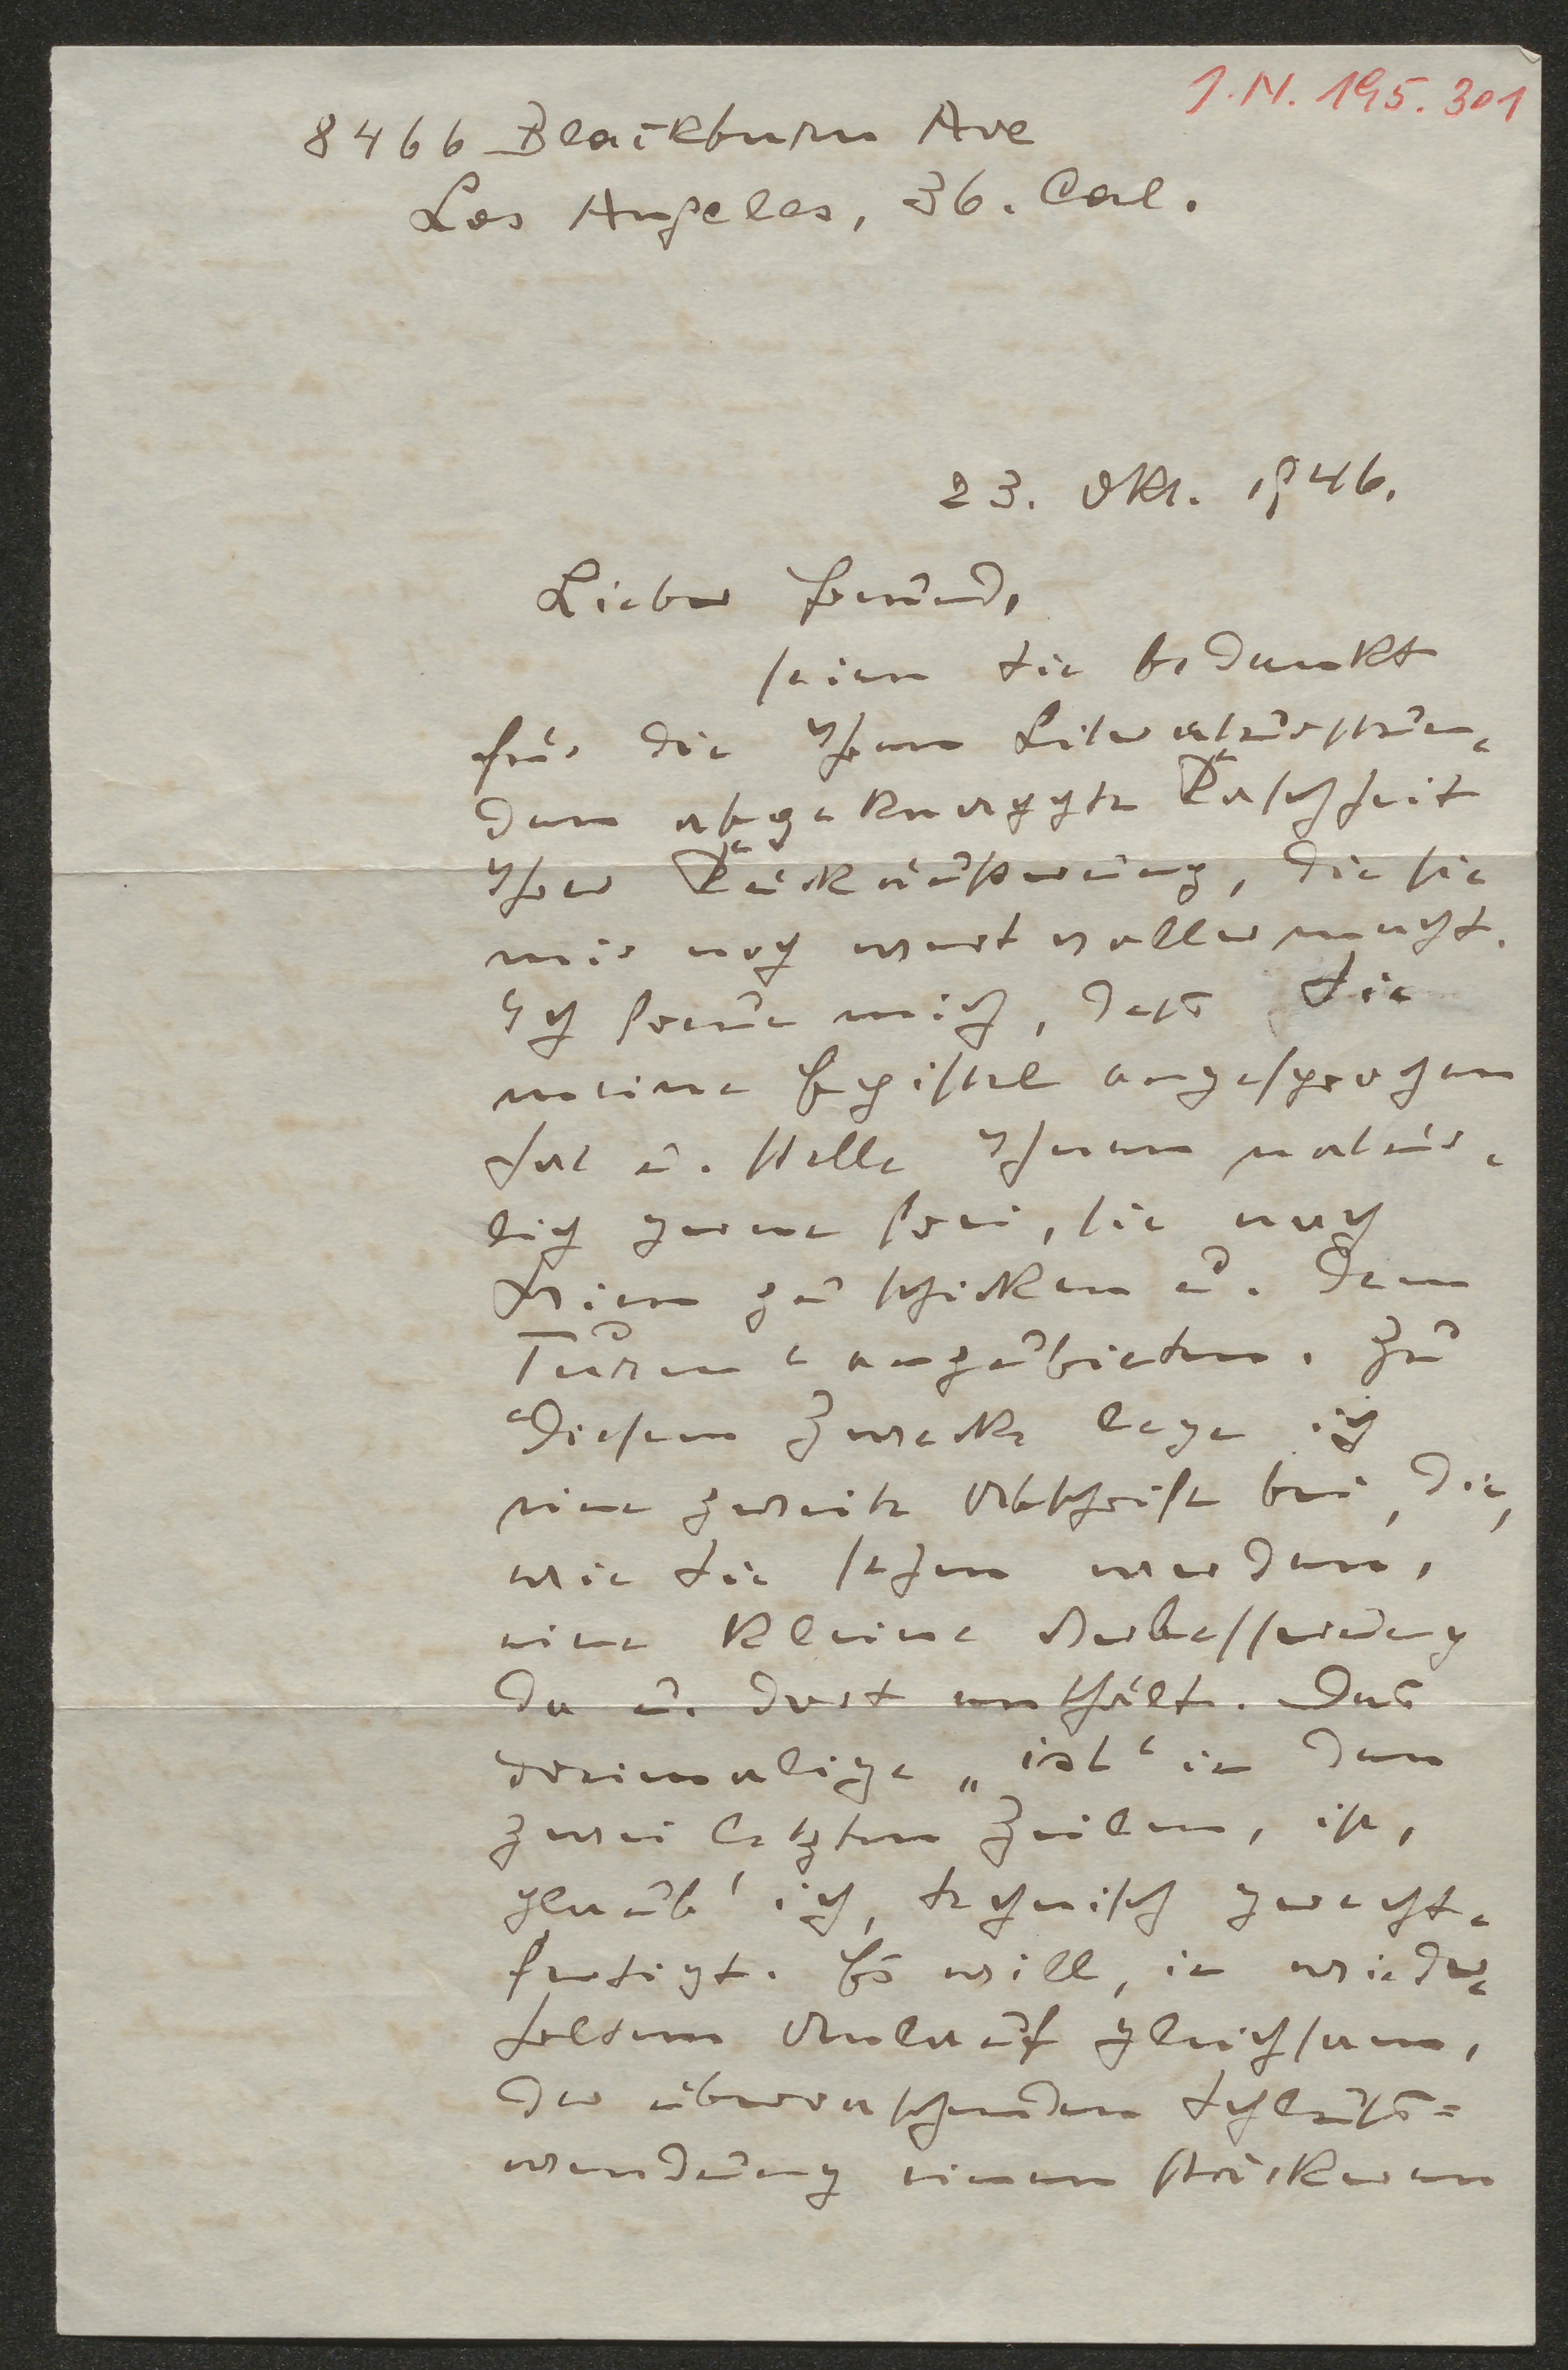 I.N. 195.301
8466 Blackburn Ave
Los Angeles, 36. Cal.
23. Okt. 1946.
Lieber Freund,
seien Sie bedankt
für die Ihren Literaturstun-
den abgeknappte Raschheit
Ihrer Rückäußerung, die sie
mir noch wertvoller macht.
Ich freue mich, dass Sie
meine Epistel angesprochen
hat u. stelle Ihnen natür-
lich gerne frei, sie nach
Wien zu schicken u. dem
Turm anzubieten. Zu
diesem Zwecke lege ich
eine zweite Abschrift bei, die,
wie Sie sehen werden,
eine kleine Verbesserung
da u. dort enthält. Das
dreimalige „ist“ in den
zwei letzten Zeilen, ist,
glaub' ich, technisch gerecht-
fertigt. Es will, in wieder-
holtem Anlauf gleichsam,
der überraschenden Schluss=
wendung einen stärkeren